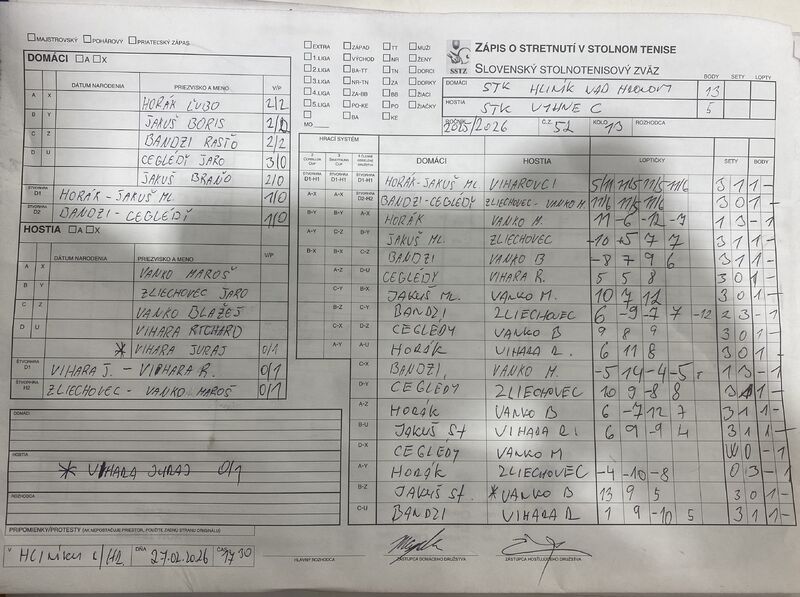 MAJSTROVSKÝ POHÁROVÝ PRIATEĽSKÝ ZÁPAS
DOMÁCI A X
DÁTUM NARODENIA PRIEZVISKO A MENO V/P
A X HORÁK ĽUBO 2/2
B Y JAKUŠ BORIS
C Z BANDZI RASŤO 2/2
D U CEGLÉDY JARO 3/0
JAKUŠ BRAŇO 2/0
ŠTVORHRA D1 HORÁK - JAKUŠ ML. 1/0
ŠTVORHRA D2 BANDZI - CEGLÉDY 1/0
HOSTIA A X
DÁTUM NARODENIA PRIEZVISKO A MENO V/P
A X VANKO MAROŠ
B Y ZLIECHOVEC JARO
C Z VANKO BLAŽEJ
D U VIHARA RICHARD
* VIHARA JURAJ 0/1
ŠTVORHRA VIHARA J. - VIHARA R. 0/1
ŠTVORHRA H2 ZLIECHOVEC - VANKO MAROŠ 0/1
DOMÁCI
HOSTIA
* VIHARA JURAJ 0/1
ROZHODCA
PRIPOMIENKY/PROTESTY (AK NEPOSTAČUJE PRIESTOR, POUŽITE ZADNÚ STRANU ORIGINÁLU)
V DŇA 27.02.2026 ČAS 17 30
EXTRA ZÁPAD TT MUŽI
1.LIGA VÝCHOD NR ŽENY
2.LIGA BA-TT TN DORCI
3.LIGA NR-TN ZA DORKY
4.LIGA ZA-BB BB ŽIACI
5.LIGA PO-KE PO ŽIAČKY
MO BA KE
SSTZ
ZÁPIS O STRETNUTÍ V STOLNOM TENISE
SLOVENSKÝ STOLNOTENISOVÝ ZVÄZ
BODY SETY LOPTY
DOMÁCI STK HLINÍK NAD HRONOM 13
HOSTIA STK VYHNE C 5
ROČNÍK 2025/2026 Č.Z. 52 KOLO 13 ROZHODCA
HRACÍ SYSTÉM DOMÁCI HOSTIA LOPTIČKY SETY BODY
D1-H1 D1-H1 D1-H1 HORÁK-JAKUŠ ML VIHAROVCI 5/11 11/5 11/6 11/6 3 1 1 -
A-X A-X D2-H2 BANDZI-CEGLÉDY ZLIECHOVEC-VANKO M. 11/6 11/5 11/6 3 0 1 -
B-Y B-Y A-X HORÁK VANKO M. 11 -6 -12 -7 1 3 - 1
A-Y C-Z B-Y JAKUŠ ML. ZLIECHOVEC -10 +5 7 7 3 1 1 -
B-X B-X C-Z BANDZI VANKO B -8 7 9 6 3 1 1 -
A-Z D-U CEGLÉDY VIHARA R. 5 5 8 3 0 1 -
C-X B-X JAKUŠ ML. VANKO M. 10 7 12 3 0 1 -
B-Z C-Y BANDZI ZLIECHOVEC 6 -9 -7 7 -12 2 3 - 1
C-Y D-Z CEGLÉDY VANKO B 9 8 9 3 0 1 -
A-Y A-U HORÁK VIHARA R. 6 11 8 3 0 1 -
C-X BANDZI VANKO M. -5 14 -4 -5 1 3 - 1
D-Y CEGLÉDY ZLIECHOVEC 10 9 -8 8 3 1 1 -
A-Z HORÁK VANKO B 6 -7 12 7 3 1 1 -
B-U JAKUŠ St VIHARA R. 6 9 -9 4 3 1 1 -
D-X CEGLÉDY VANKO M 1 -
A-Y HORÁK ZLIECHOVEC -4 -10 -8 0 3 - 1
B-Z JAKUŠ St. * VANKO B 13 9 5 3 0 1 -
C-U BANDZI VIHARA R 1 9 -10 5 3 1 1 -
HLAVNÝ ROZHODCA ZÁSTUPCA DOMÁCEHO DRUŽSTVA ZÁSTUPCA HOSŤUJÚCEHO DRUŽSTVA